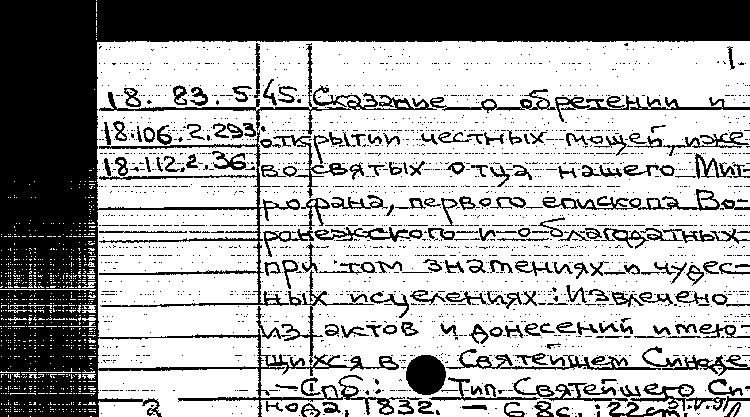 1.
18. 83. 5. 45. Сказание о обретении и
18.106.2.293. открытии честных мощей, иже
18.112.2.36. во святых отца нашего Мит-
рофана, первого епископа Во-
ронежского и о благодатных
при том знамениях и чудес-
ных исцелениях: Извлечено
из актов и донесений имею-
щихся в Святейшем Синоде
. — Спб.: Тип. Святейшего Си-
2 нода, 1832. — 68с. ; 22см